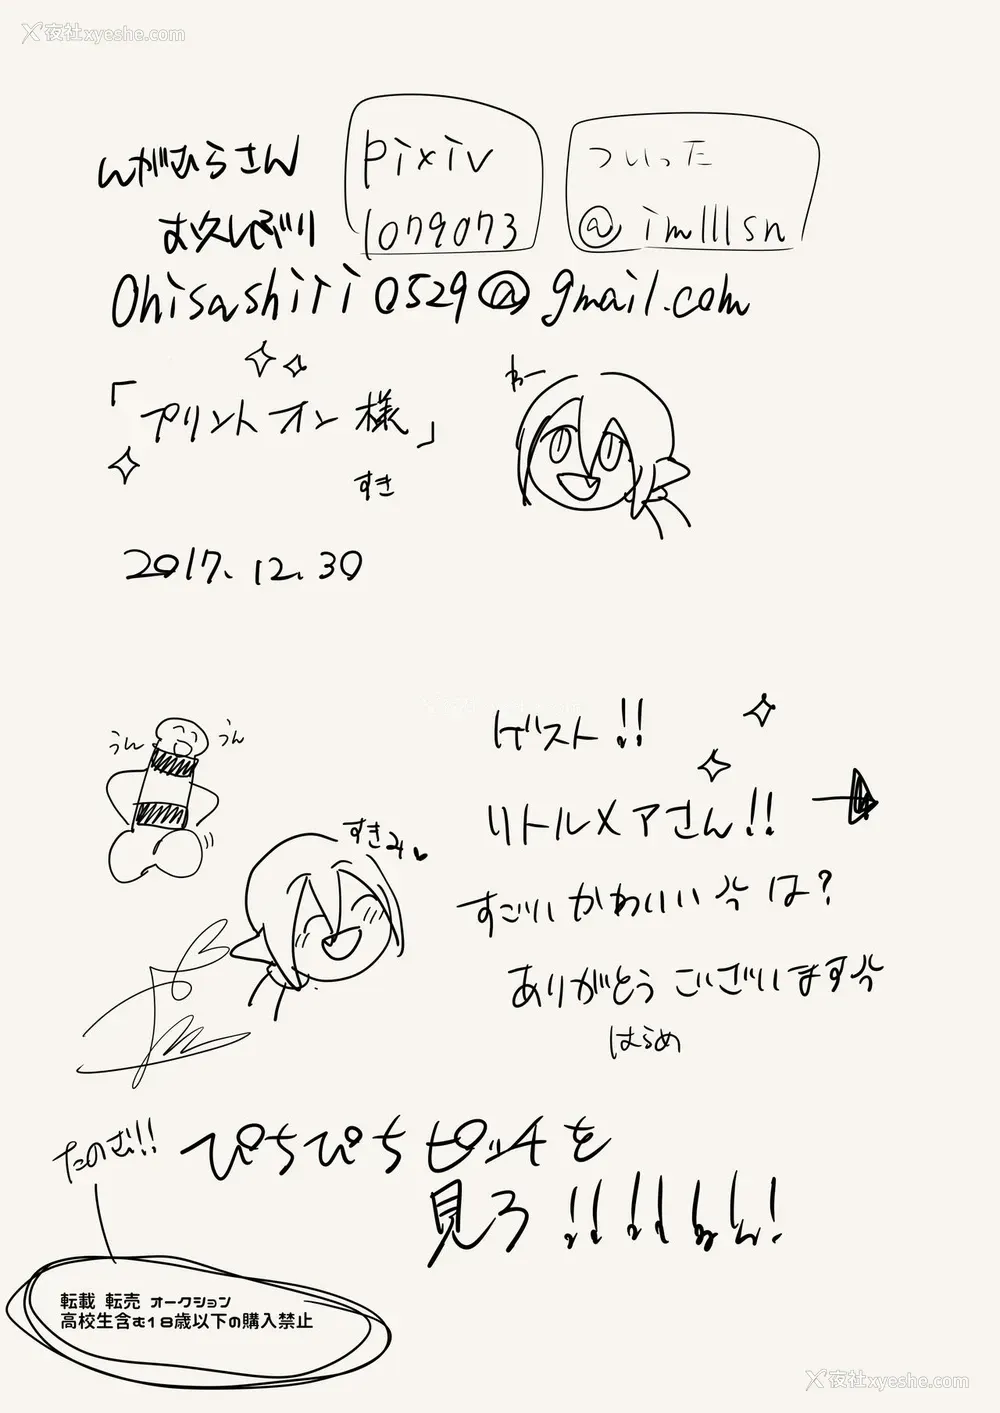 X夜社xyeshe.com
んがむらさん
お久しぶり
pixiv
1079073
ついった
@imlllsn
Ohisashiri0529@gmail.com
「プリントオン様」
わー
すき
2017.12.30
うん うん
ゲスト!!
リトルメアさん!!
すきみ
すごいかわいい は?
ありがとうございます
はらめ
たのむ!!
ぴちぴちピッチを
見ろ!!!!!!!
転載 転売 オークション
高校生含む18歳以下の購入禁止
X夜社xyeshe.com